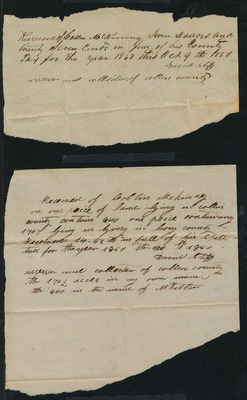 Received of Collin McKinney Seven Dollars and
twenty Seven Cents in full of his County
Tax for the year 1850 this Oct 9th 1850
David Cuff
assessor and collector of collin county
Received of Collin McKinney
on one peice of land lying in collin
county contain 640 one peice containing
lying in county
Received in full of his State
tax for the year 1851 the
David Cuff
assessor and collector of collin county
the 1702 acres in my own name
the 640 in the name of